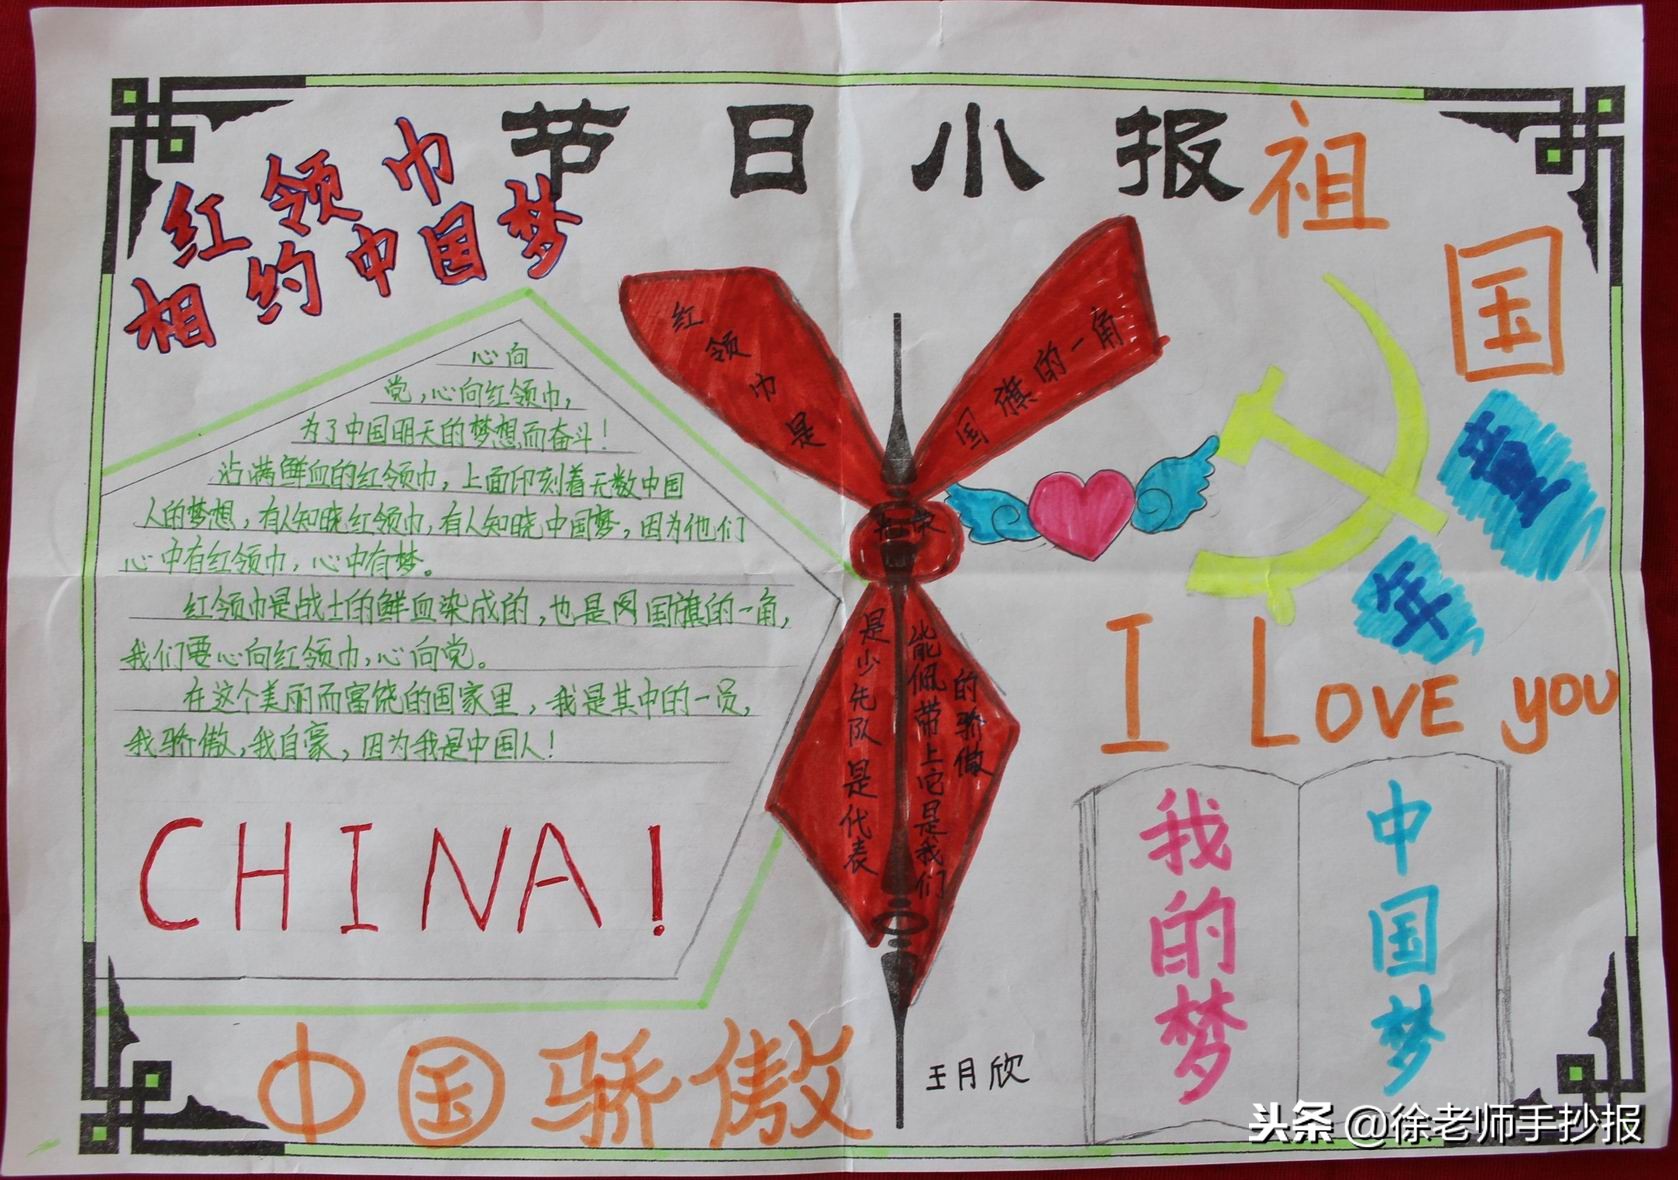 节日小报
红领巾
相约中国梦
祖国
童年
心向
党，心向红领巾，
为了中国明天的梦想而奋斗！
沾满鲜血的红领巾，上面印刻着无数中国
人的梦想，有人知晓红领巾，有人知晓中国梦，因为他们
心中有红领巾，心中有梦。
红领巾是战士的鲜血染成的，也是国旗的一角，
我们要心向红领巾，心向党。
在这个美丽而富饶的国家里，我是其中的一员，
我骄傲，我自豪，因为我是中国人！
CHINA！
红领巾是
国旗的一角
是少先队是代表
能佩带上它是我们
的骄傲
I LOVE you
我的梦
中国梦
中国骄傲
王月欣
头条@徐老师手抄报